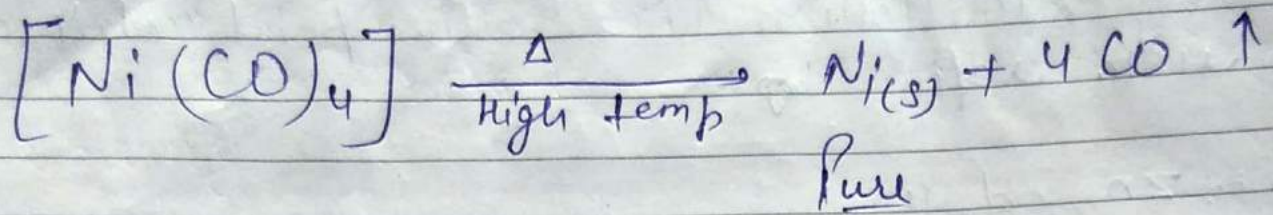 [Ni(CO)₄] Δ High temp → Ni(s) + 4 CO ↑
Pure